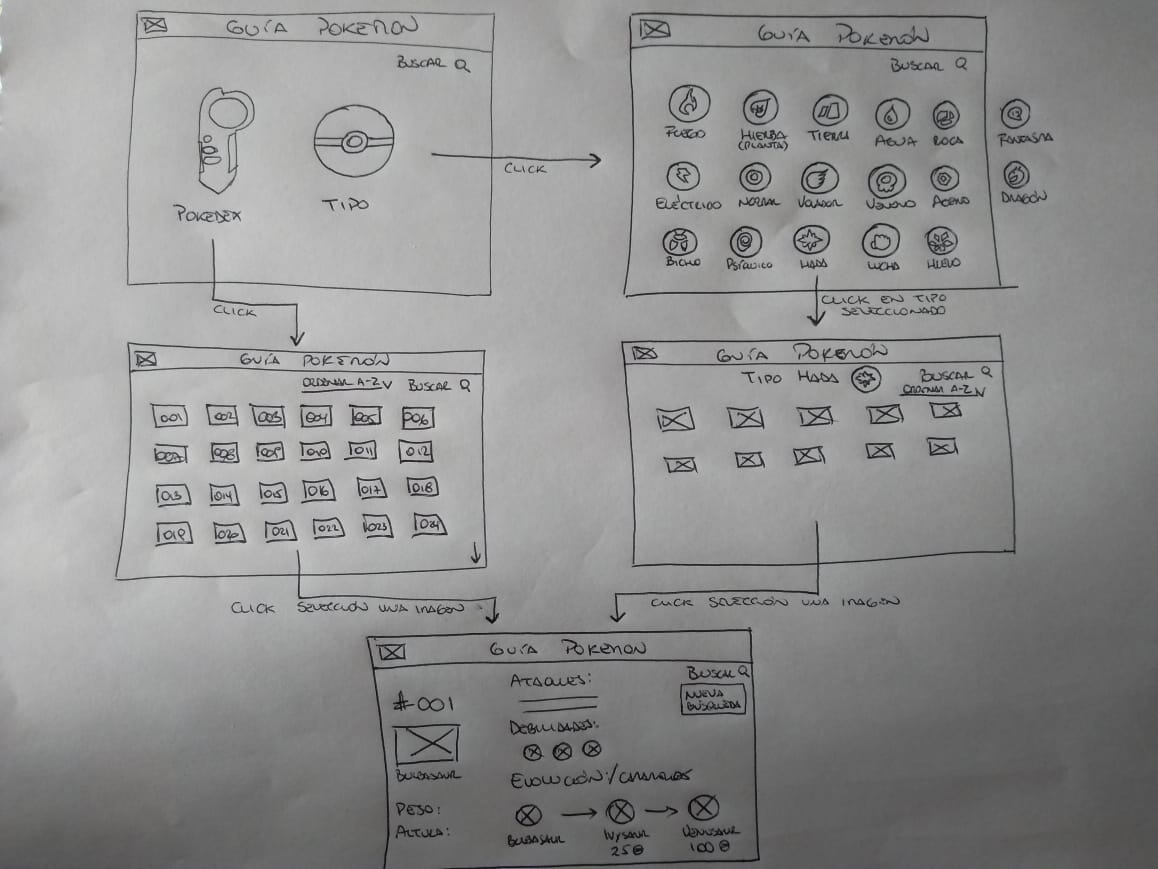 GUÍA POKEMON
BUSCAR
POKEDEX
TIPO
CLICK
CLICK
GUÍA POKEMÓN
BUSCAR
FUEGO
HIERBA
(PLANTA)
TIERRA
AGUA
ROCA
FANTASMA
ELÉCTRICO
NORMAL
VOLADOR
VENENO
ACERO
DRAGÓN
BICHO
PSÍQUICO
HADA
LUCHA
HIELO
CLICK EN TIPO
SELECCIONADO
GUÍA POKEMÓN
ORDENAR A-Z
BUSCAR
001 002 003 004 005 006
007 008 009 010 011 012
013 014 015 016 017 018
019 020 021 022 023 024
CLICK SELECCIÓN UNA IMAGEN
GUÍA POKEMÓN
TIPO HADA
BUSCAR
ORDENAR A-Z
CLICK SELECCIÓN UNA IMAGEN
GUÍA POKEMON
BUSCAR
NUEVA
BÚSQUEDA
#001
BULBASAUR
PESO:
ALTURA:
ATAQUES:
DEBILIDADES:
EVOLUCIÓN/CARAMELOS
BULBASAUR
IVYSAUR
25
VENUSAUR
100